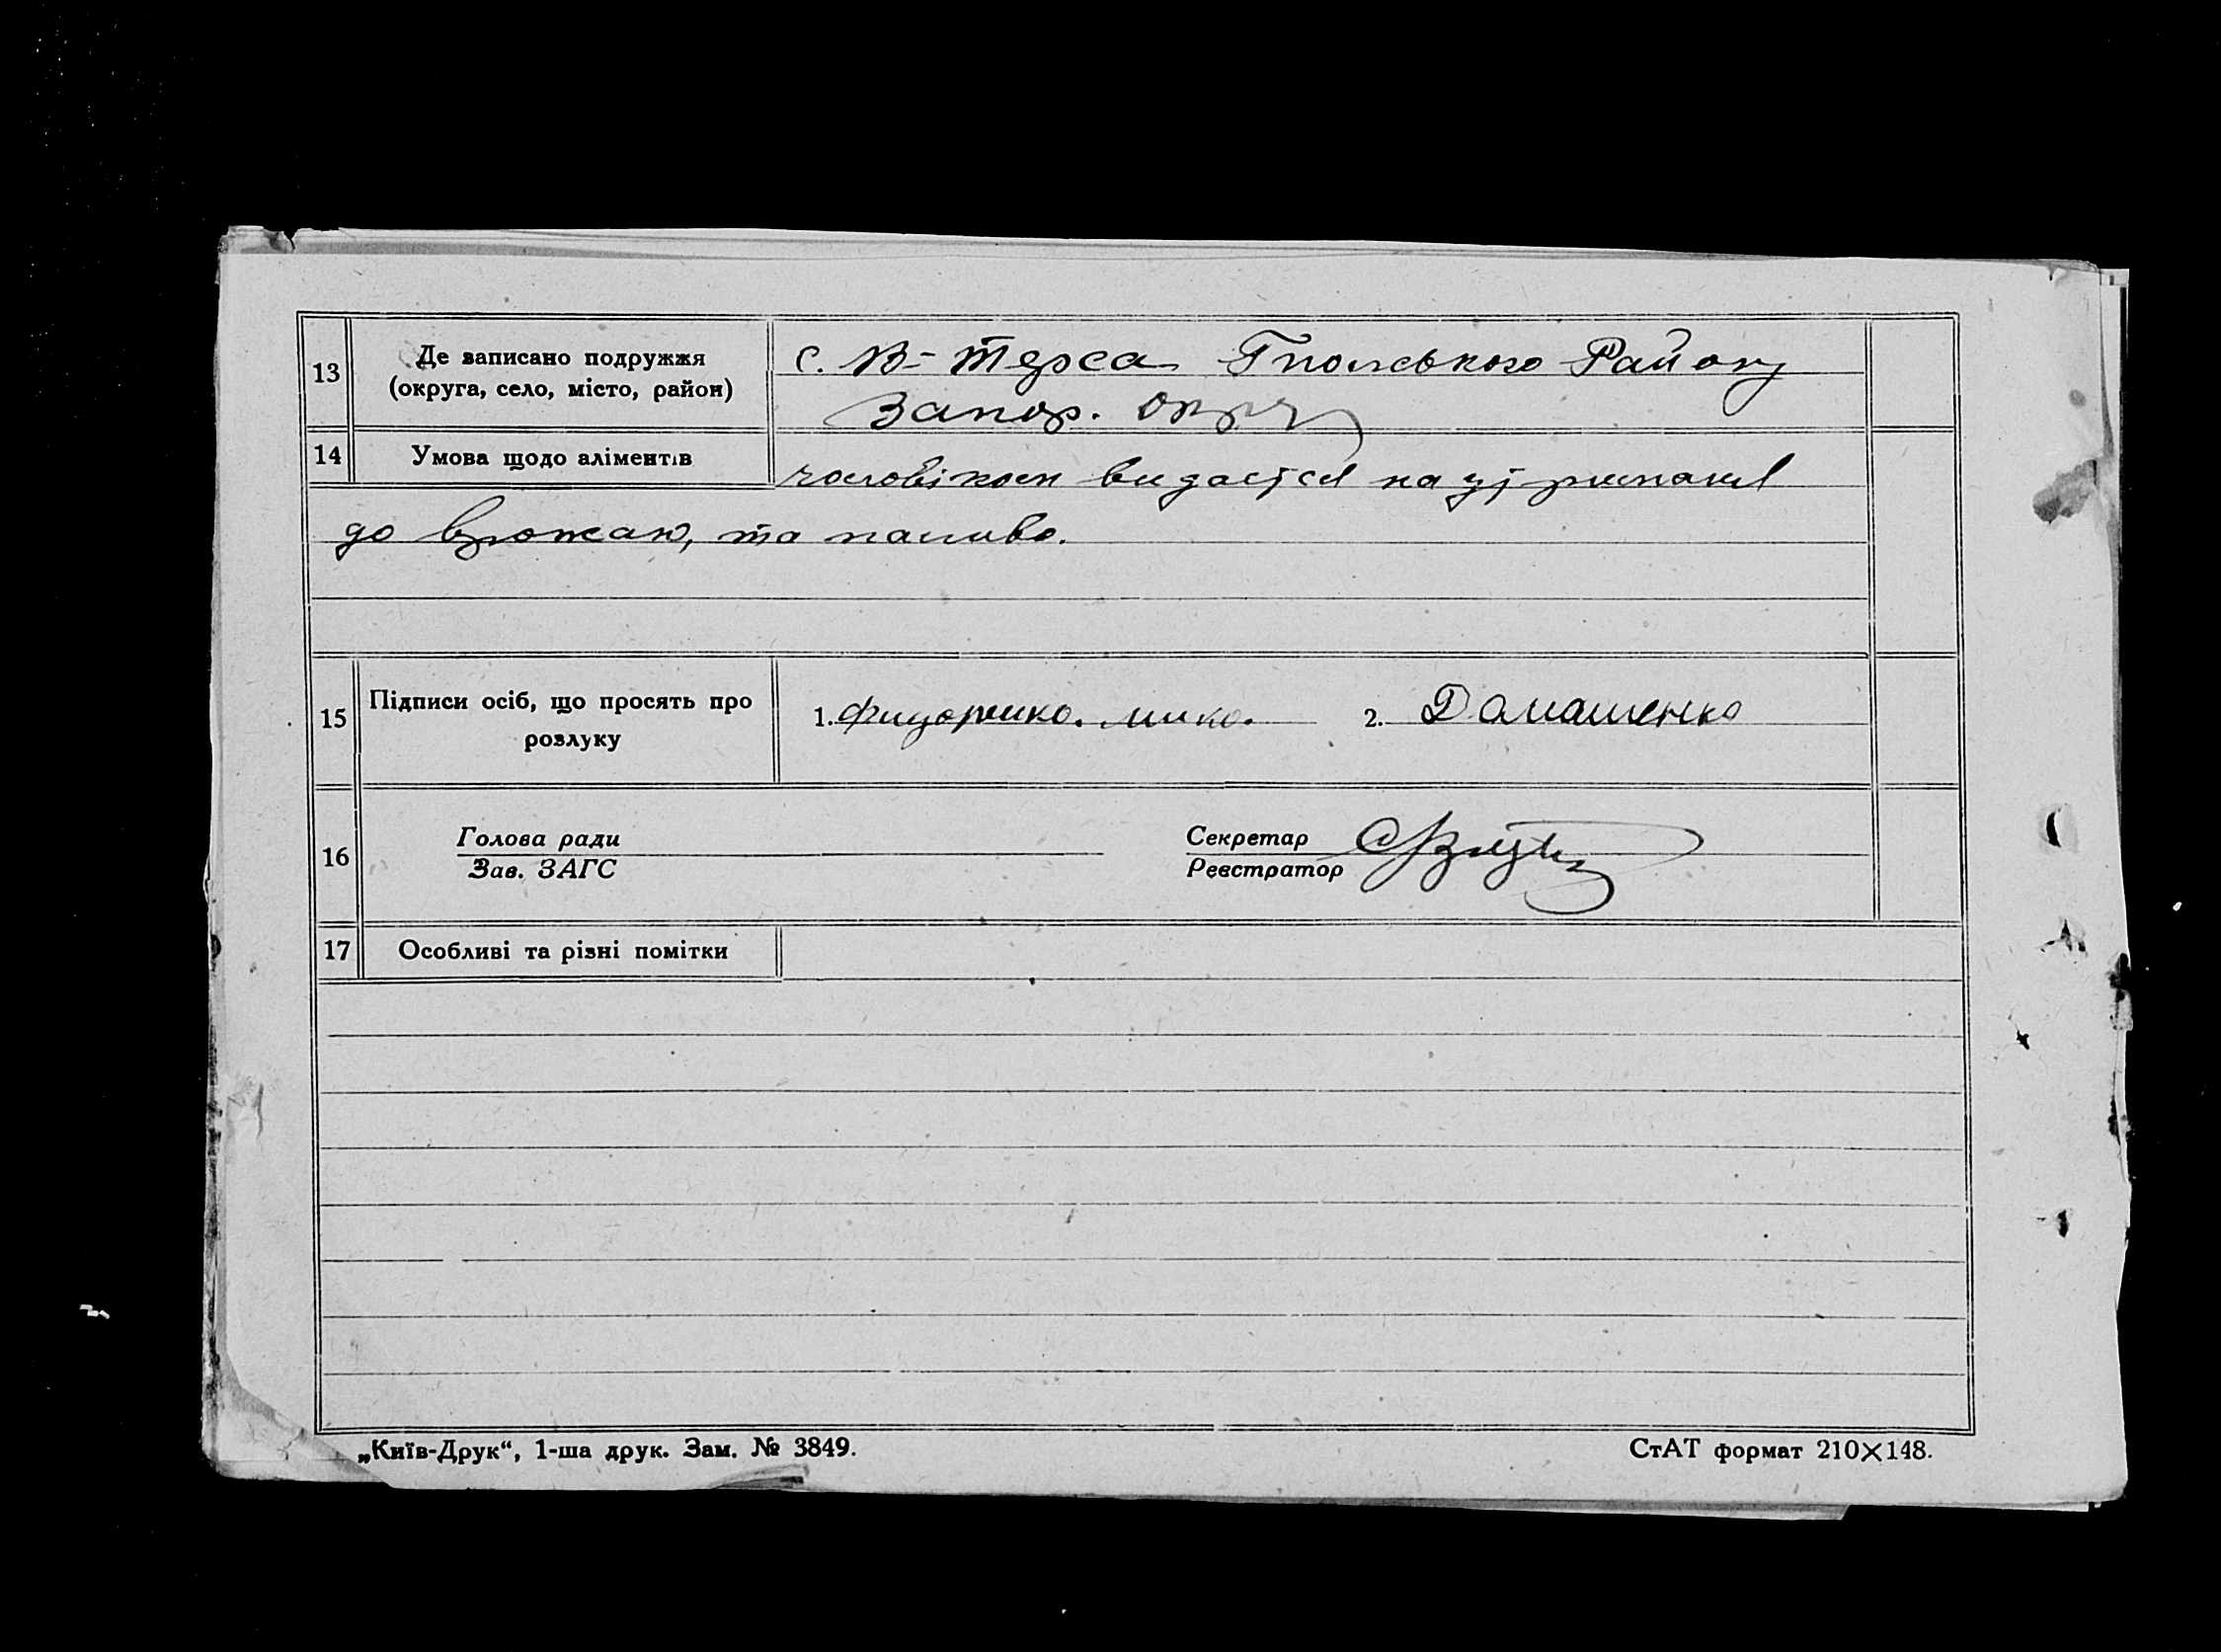 13 Де записано подружжя
(округа, село, місто, район)
с. В-Терса Гполського Району
Запор. Окр
14 Умова щодо аліментів
чоловіком видається на
до врожаю, та паливо.
15 Підписи осіб, що просять про
розлуку
1. Фидоренко. 2. Домашенко
16 Голова ради
Зав. ЗАГС
Секретар
Реєстратор
17 Особливі та різні помітки
„Київ-Друк“, 1-ша друк. Зам. № 3849. СтАТ формат 210×148.